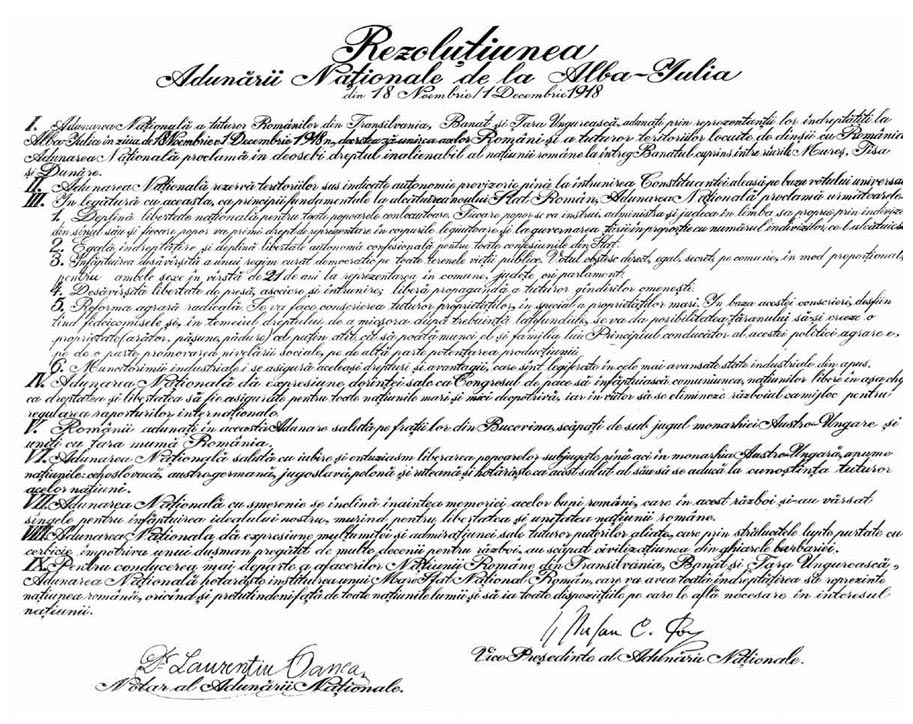 Rezoluțiunea
Adunării Naționale de la Alba-Iulia
din 18 Noembrie/1 Decembrie 1918
I. Adunarea Națională a tuturor Românilor din Transilvania, Banat și Țara Ungurească, adunați prin reprezentanții lor îndreptățiți la
Alba-Iulia în ziua de 18 Noembrie/1 Decembrie 1918, decretează unirea acelor Români și a tuturor teritoriilor locuite de dînșii cu România.
Adunarea Națională proclamă în deosebi dreptul inalienabil al națiunii române la întreg Banatul cuprins între rîurile Mureș, Tisa
și Dunăre.
II. Adunarea Națională rezervă teritoriilor sus indicate autonomie provizorie pînă la întrunirea Constituantei aleasă pe baza votului universal
III. În legătură cu aceasta, ca principii fundamentale la alcătuirea noului Stat Român, Adunarea Națională proclamă următoarele:
1. Deplină libertate națională pentru toate popoarele conlocuitoare. Fiecare popor se va instrui, administra și judeca în limba sa proprie prin indivizi
din sînul său și fiecare popor va primi drept de reprezentare în corpurile legiuitoare și la guvernarea țării în proporție cu numărul indivizilor ce-l alcătuiesc
2. Egală îndreptățire și deplină libertate autonomă confesională pentru toate confesiunile din Stat.
3. Înfăptuirea desăvîrșită a unui regim curat democratic pe toate terenele vieții publice. Votul obștesc, direct, egal, secret, pe comune, în mod proporțional,
pentru ambele sexe în vîrstă de 21 de ani la reprezentarea în comune, județe ori parlament.
4. Desăvîrșită libertate de presă, asociere și întrunire; liberă propagandă a tuturor gîndirilor omenești.
5. Reforma agrară radicală. Se va face conscrierea tuturor proprietăților, în special a proprietăților mari. În baza acestei conscrieri, desfiin
țind fideicomisele și, în temeiul dreptului de a micșora după trebuință latifundiile, se va da posibilitatea țăranului să-și creeze o
proprietate (arător, pășune, pădure) cel puțin atît cît să poată munci el și familia lui. Principiul conducător al acestei politici agrare e,
pe de o parte promovarea nivelării sociale, pe de altă parte potențarea producțiunii.
6. Muncitorimii industriale i se asigură aceleași drepturi și avantagii, care sînt legiferate în cele mai avansate state industriale din apus.
IV. Adunarea Națională dă expresiune dorinței sale ca Congresul de pace să înfăptuiască comuniunea națiunilor libere în așa chip
ca dreptatea și libertatea să fie asigurate pentru toate națiunile mari și mici deopotrivă, iar în viitor să se elimineze războiul ca mijloc pentru
regularea raporturilor internaționale.
V. Românii adunați în această Adunare salută pe frații lor din Bucovina, scăpați de sub jugul monarhiei Austro-Ungare și
uniți cu țara mumă România.
VI. Adunarea Națională salută cu iubire și entuziasm liberarea popoarelor subjugate pînă aci în monarhia Austro-Ungară, anume
națiunile: cehoslovacă, austrogermană, jugoslavă, polonă și ruteană și hotărăște ca acest salut al său să se aducă la cunoștința tuturor
acelor națiuni.
VII. Adunarea Națională cu smerenie se închină înaintea memoriei acelor bani români, care în acest război și-au vărsat
sîngele pentru înfăptuirea idealului nostru, murind pentru libertatea și unitatea națiunii române.
VIII. Adunarea Națională dă expresiune mulțumitei și admirațiunei sale tuturor puterilor aliate, care prin strălucitele lupte purtate cu
cerbicie împotriva unui dușman pregătit de multe decenii pentru război, au scăpat civilizațiunea din ghiarele barbariei.
IX. Pentru conducerea mai departe a afacerilor Națiunii Române din Transilvania, Banat și Țara Ungurească,
Adunarea Națională hotărăște instituirea unui Mare Sfat Național Român, care va avea toată îndreptățirea să reprezinte
națiunea română, oricînd și pretutindeni față de toate națiunile lumii și să ia toate dispozițiile pe care le află necesare în interesul
națiunii.
Dr Laurențiu Oanea
Notar al Adunării Naționale.
Vice Președinte al Adunării Naționale.